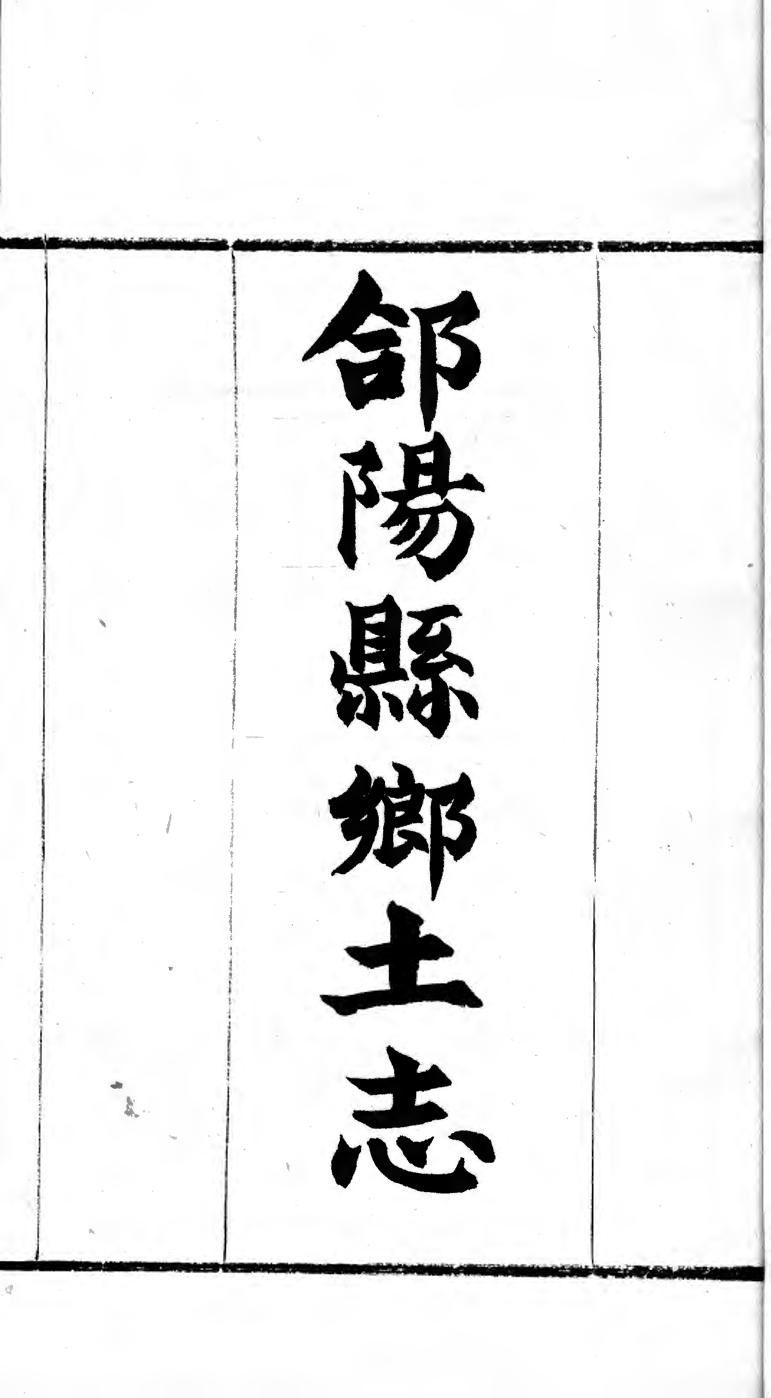 郃陽縣鄉土志